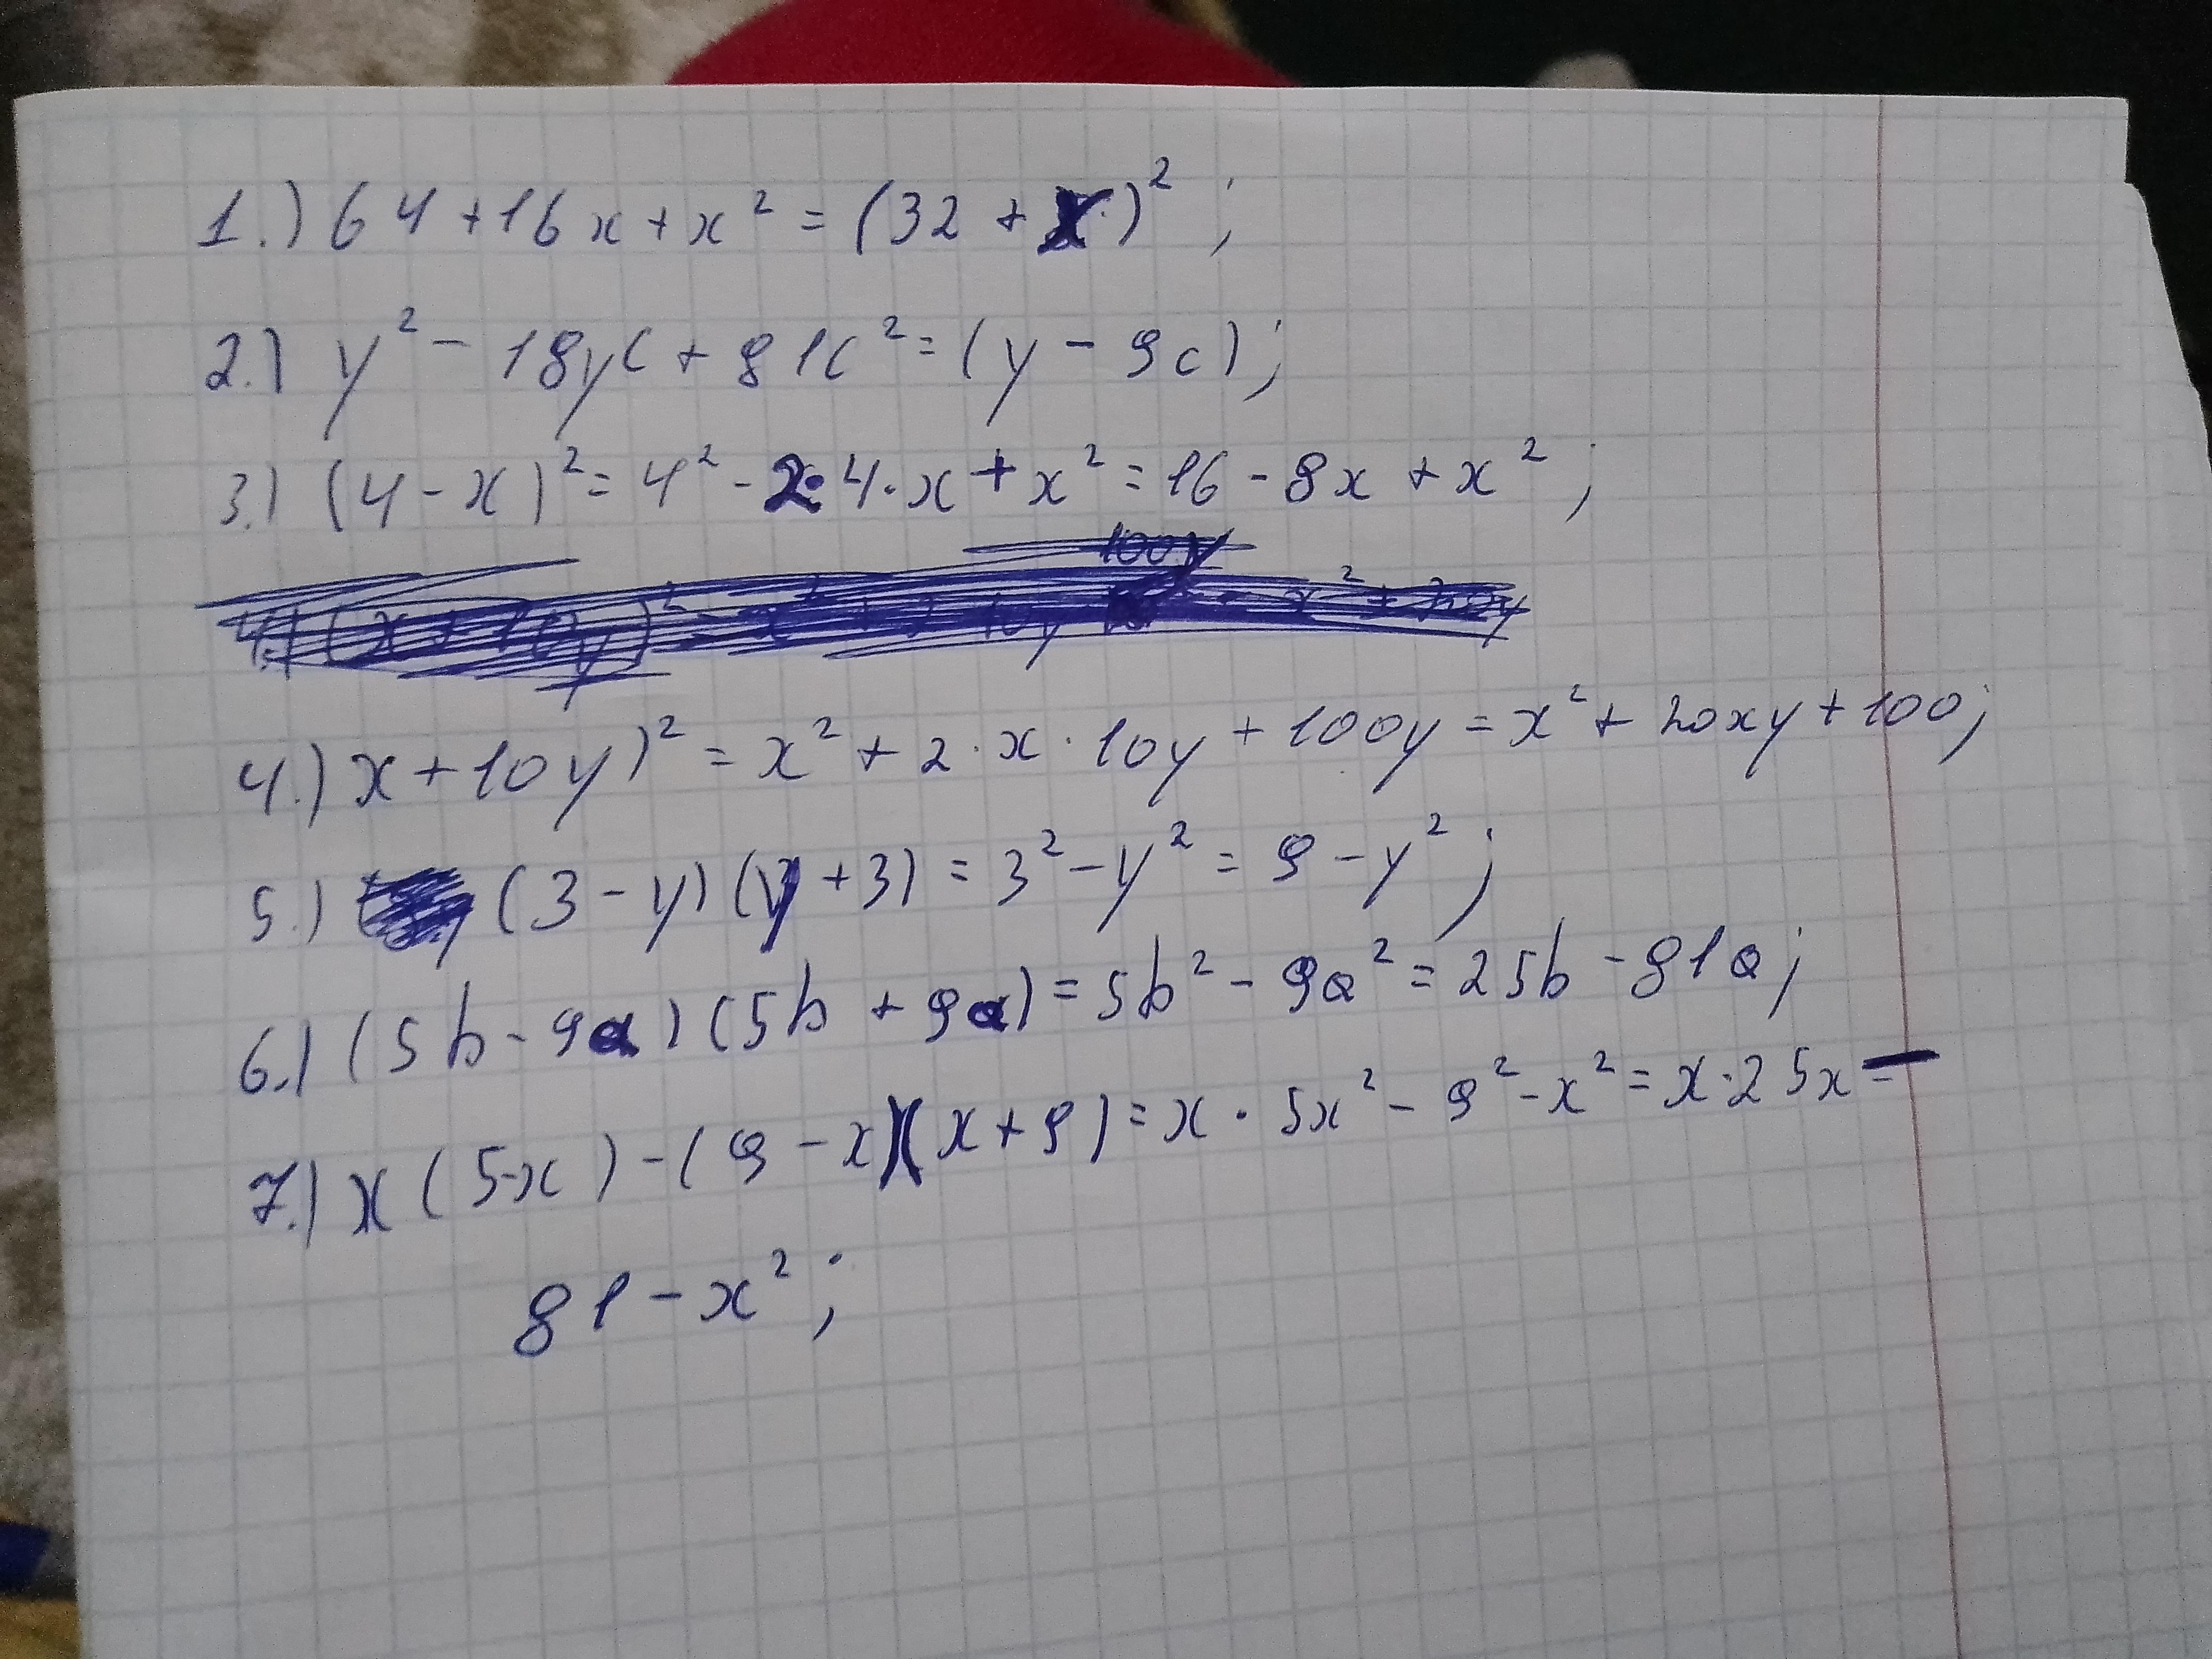 1.) 64 + 16x + x² = (32 + x)² ;
2.) y² - 18yc + 81c² = (y - 9c) ;
3.) (4 - x)² = 4² - 2 · 4 · x + x² = 16 - 8x + x² ;
4.) x + 10y)² = x² + 2 · x · 10y + 100y = x² + 20xy + 100 ;
5.) (3 - y) (y + 3) = 3² - y² = 9 - y² ;
6.) (5b - 9a) (5b + 9a) = 5b² - 9a² = 25b - 81a ;
7.) x (5-x) - (9 - x)(x + 9) = x · 5x² - 9² - x² = x · 25x -
81 - x² ;